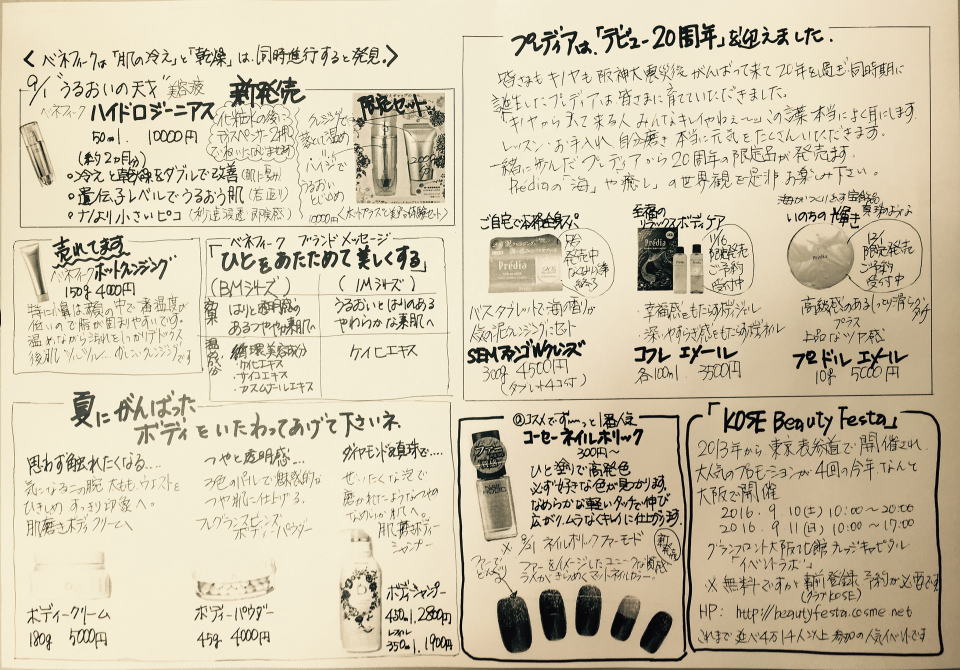 < ベネフィークは「肌の冷え」と「乾燥」は、同時進行すると発見。>
9/1 "うるおいの天才" 美容液 新発売
ベネフィーク ハイドロジーニアス
50ml. 10000円
(約2ヵ月分)
・冷えと乾燥をダブルで改善
・遺伝子レベルでうるおう肌
・ナノより小さいピコ
限定セット
売れてます
ベネフィーク ホットクレンジング
150g 4000円
特に小鼻は顔の中で一番温度が
低いので脂が固まりやすいです。
温めながら汚れをしっかりデトックス
ベネフィーク ブランドメッセージ
「ひとをあたためて美しくする」
(BMシリーズ) (IMシリーズ)
効果 はりと透明感の
あるつややか素肌へ
うるおいとはりのある
やわらかな素肌へ
温成分
循環美容成分
・ケイヒエキス
・サイコエキス
・カスムナールエキス
ケイヒエキス
プレディアは、「デビュー20周年」を迎えました。
皆さまもキヤも阪神大震災後がんばって来て20年を過ぎ同時期に
誕生したプレディアは皆さまに育てていただきました。
「キヤから出て来る人みんなキレイやねえ〜」この言葉本当によく耳にします。
レッスン・お手入れ、自分磨き本当に元気をたくさんいただきます。
一緒に歩んだプレディアから20周年の限定品が発売します。
Prediaの「海」や「癒し」の世界観を是非お楽しみ下さい。
ご自宅で本格全身スパ
発売中
なくなり次第
終了
バスタブレットで海の香り
人気泥クレンジングとセット
SPMファンゴWクレンズ
300g 4500円
(タブレット4コ付)
至福の
リラックスボディケア
Prédia
11/16
限定発売
ご予約
受付中
・幸福感をもたらす
・深いやすらぎ感をもたらす
コフレ エメール
各100ml. 3500円
いのちの輝き
Prédia
12/1
限定発売
ご予約
受付中
高級感のあるしっとり滑らかタッチ
プラス
上品なツヤ感
プードル エメール
10g 5000円
夏にがんばった
ボディをいたわってあげて下さいネ.
思わず触れたくなる....
気になる二の腕 太もも ウェストを
ひきしめ すっきり印象へ。
肌磨きボディクリームへ
ボディークリーム
180g 5000円
つやと透明感....
3色のパールで魅惑的な
つや肌に仕上げる.
フレグランスビーンズ
ボディーパウダー
ボディーパウダー
45g 4000円
ダイヤモンド&真珠で....
ぜいたくな泡で
磨かれたようなつやの
なめらかな肌へ。
肌磨きボディー
シャンプー
ボディシャンプー
450ml. 2800円
レフィル
350ml. 1900円
@コスメでず〜っと1番人気
コーセーネイルホリック
300円〜
ひと塗りで高発色
必ず好きな色が見つかります。
なめらかな軽いタッチで伸び
広がり、ムラなくキレイに仕上がります.
※ 9/21 ネイルホリックファーモード
新発売
ファーをイメージしたユニークな質感
ラメがきらめくマットネイルカラー。
「KOSE Beauty Festa」
2013年から東京表参道で開催され
大人気のプロモーションが4回の今年なんと
大阪で開催
2016. 9. 10(土) 10:00〜20:00
2016. 9. 11(日) 10:00〜17:00
グランフロント大阪北館ナレッジキャピタル
「イベントラボ」
※ 無料ですが事前登録 予約が必要です
(クラブKOSE)
HP: http://beautyfesta.cosme.net
これまで延べ4万4千人以上参加の人気イベントです